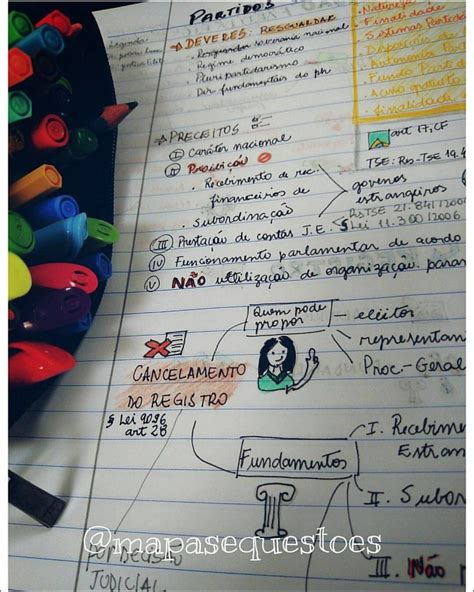 PARTIDOS
Legenda:
→ DEVERES: RESGUARDAR
• Resguardar soberania nacional
• Regime democrático
• Pluripartidarismo
• Dir. fundamentais da ph
Natureza
Finalidade
Sistemas Partidá
Autonomia Par
Fundo Parti
Acesso gratuito
finalidade
→ PRECEITOS
I Caráter nacional
II Proibição
• Recebimento de rec.
financeiros de
• Subordinação
governos
estrangeiros
art 17, CF
TSE: Res-TSE 19.4
RSTSE 21.841/2004
§ Lei 11.300/2006
III Prestação de contas J.E.
IV Funcionamento parlamentar de acordo
V NÃO utilização de organização param
Quem pode
propor
eleitor
representan
Proc-Geral
CANCELAMENTO
DO REGISTRO
§ Lei 9096
art 28
Fundamentos
I. Recebime
Estran
II. Subor
III. Não
@mapasequestoes
JUDICIAL